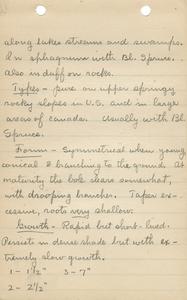 along lakes streams and swamps.
In sphagnum with Bl. Spruce.
Also in duff on rocks.
Types - pure on upper springy
rocky slopes in U.S. and in large
areas of Canada. Usually with Bl.
Spruce.
Form - Symmetrical when young
conical & branching to the ground. At
maturity the bole clears somewhat,
with drooping branches. Taper ex-
cessive, roots very shallow.
Growth - Rapid but short-lived.
Persists in dense shade but with ex-
tremely slow growth.
1 - 1½" 3 - 7"
2 - 2½"